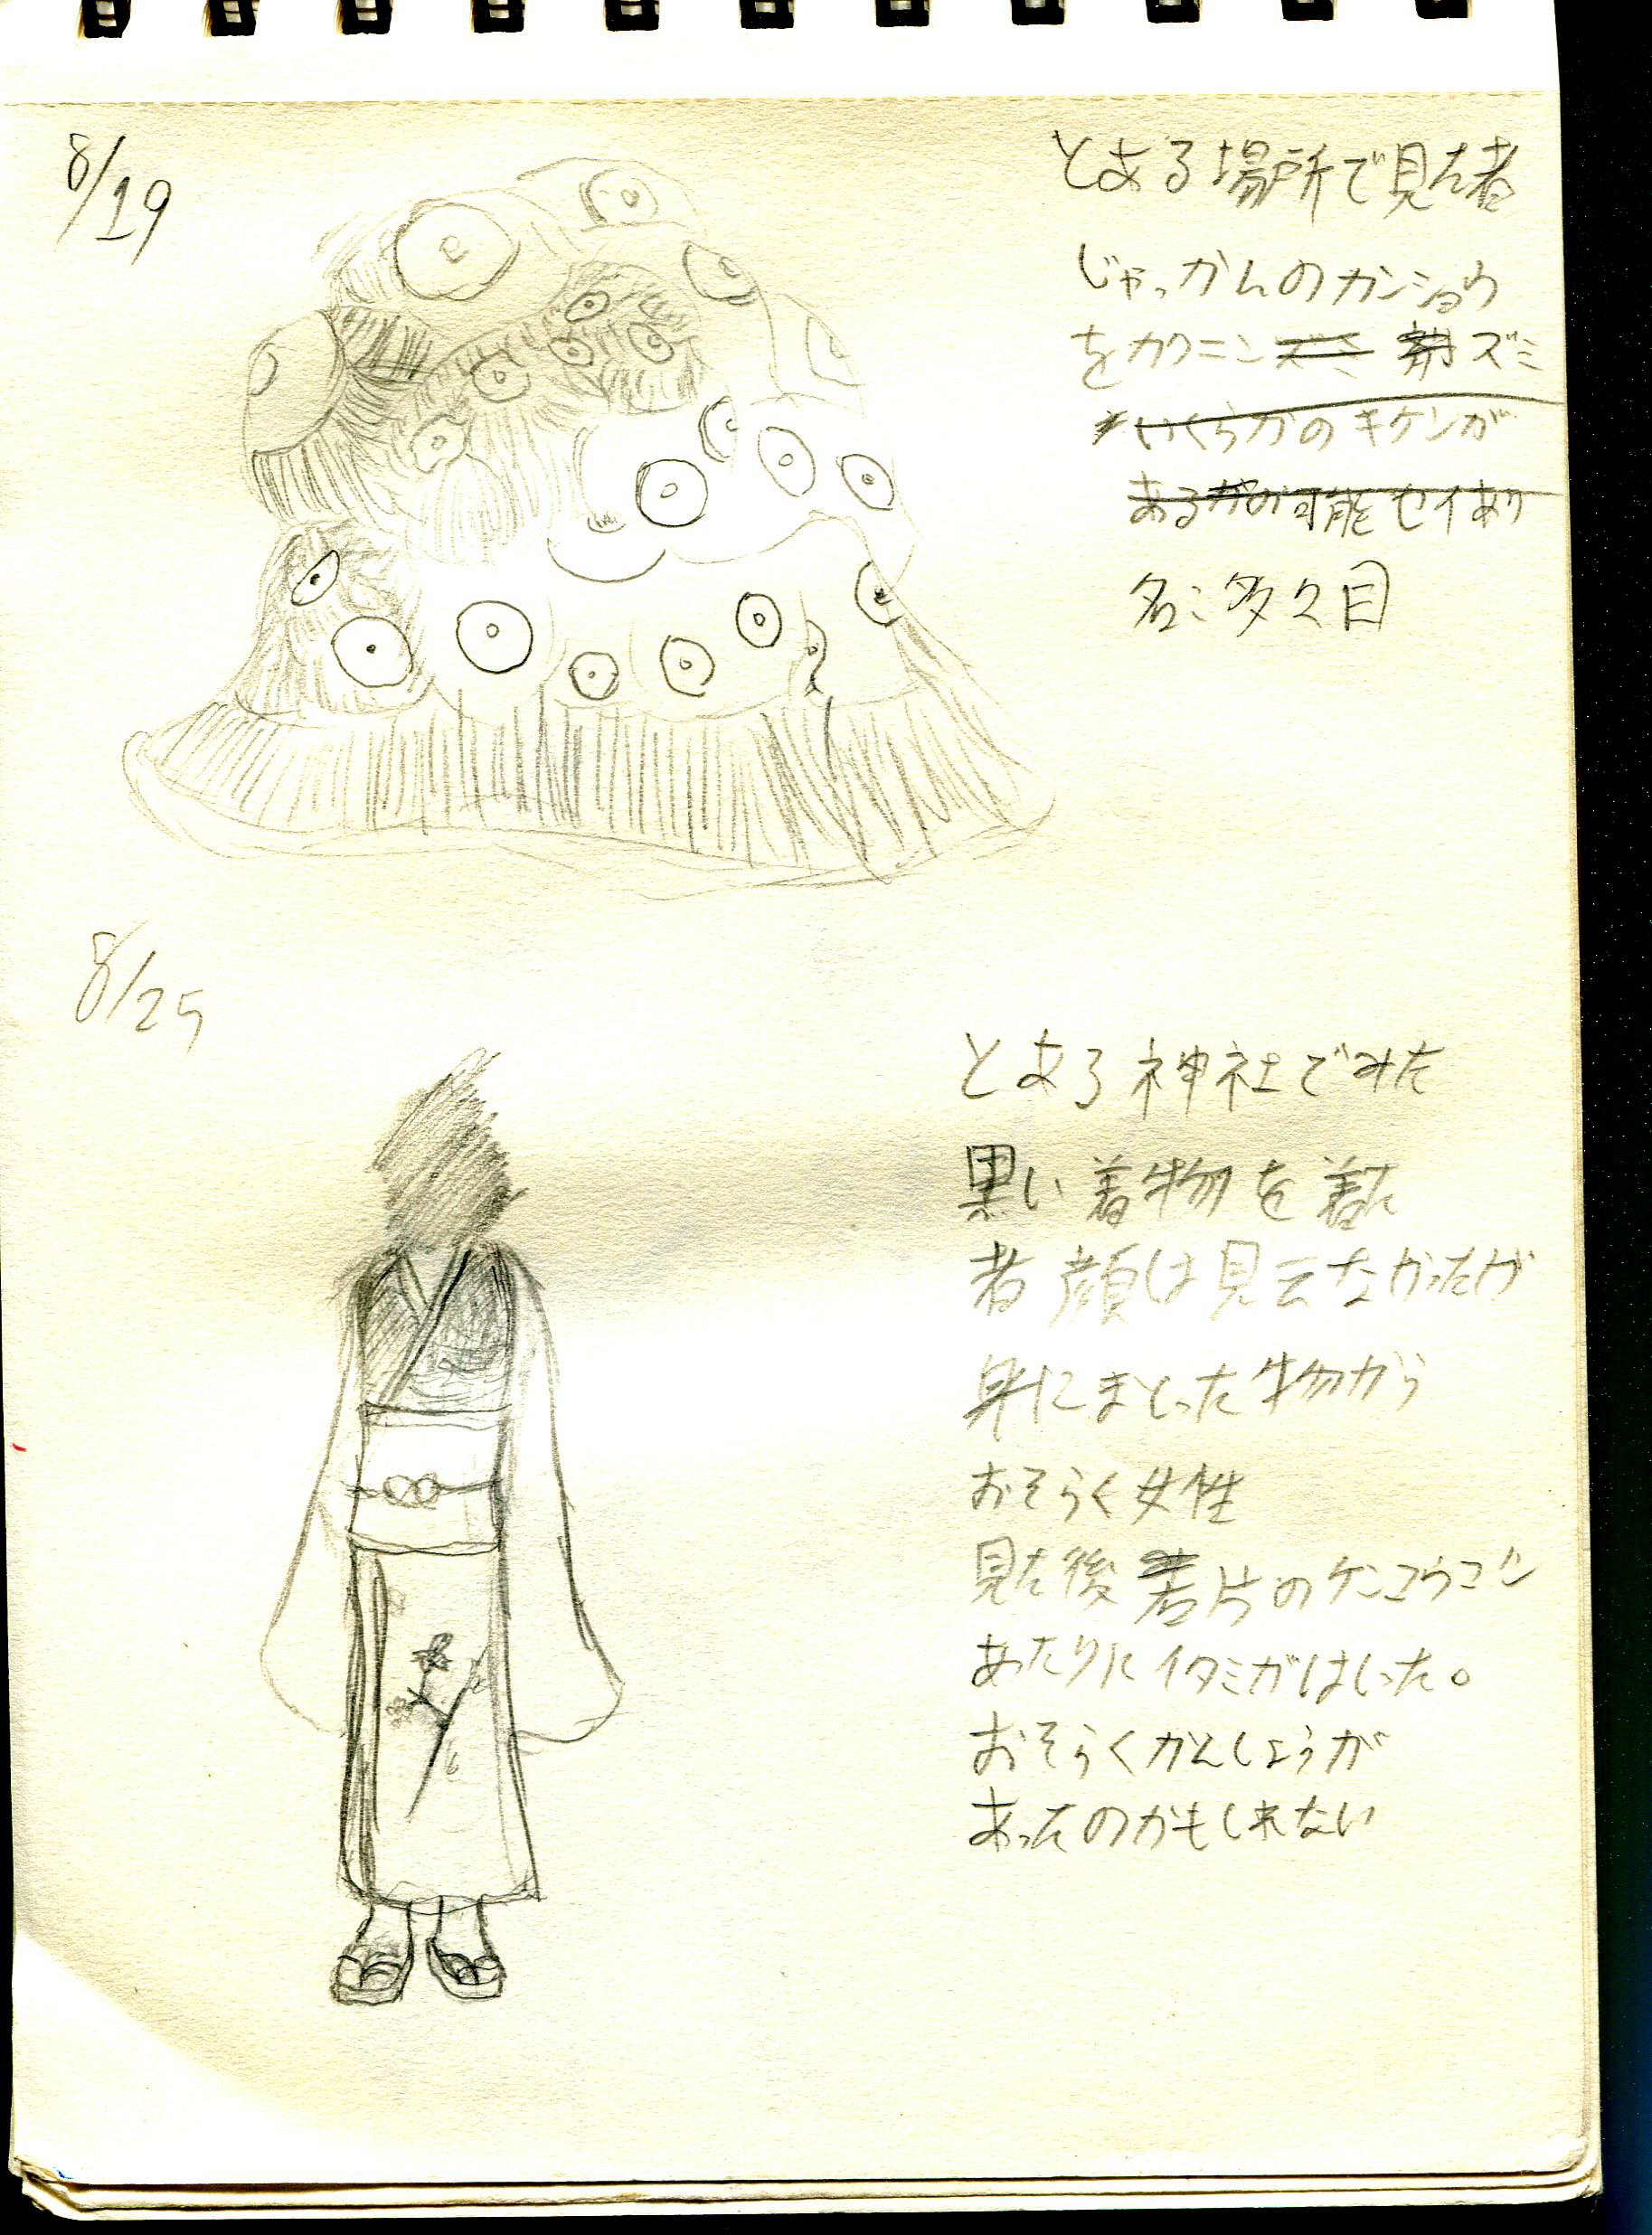 8/19
とある場所で見た者
じゃっかんのカンショウ
をカクニン ズミ
いくらかのキケンが
あるがの可能セイあり
名:多々目
8/25
とある神社でみた
黒い着物を着た
者 顔は見えなかったが
身にまとった物から
おそらく女性
見た後 片のケンコウコツ
あたりにイタミがはしった。
おそらくかんしょうが
あったのかもしれない